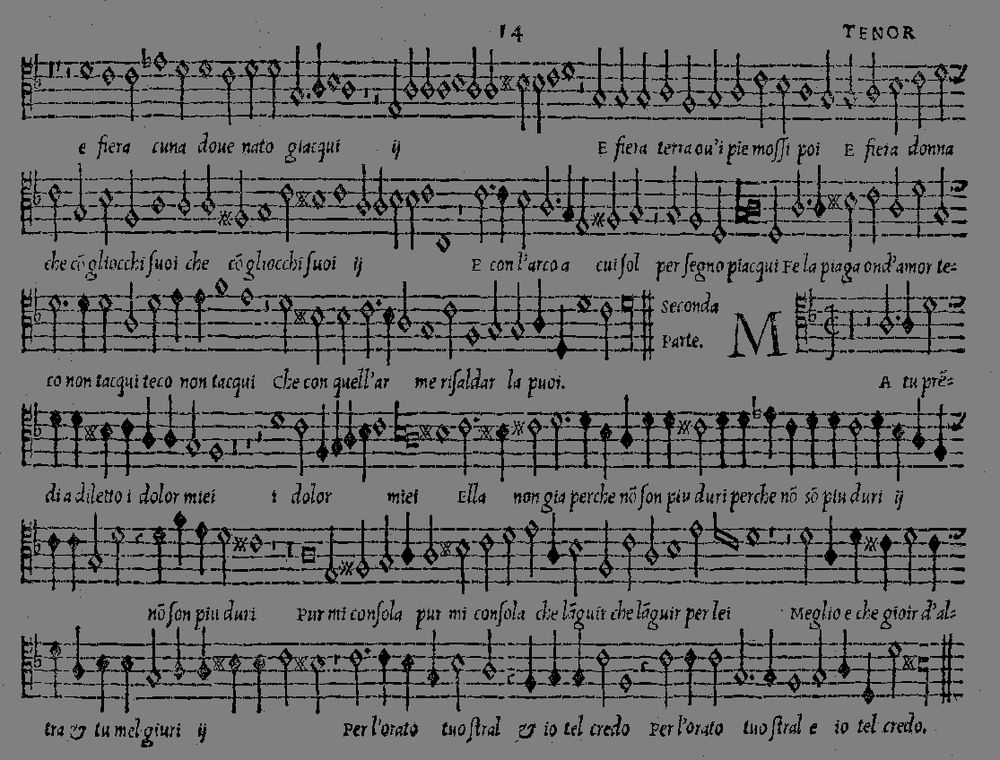 14 TENOR
e fiera cuna doue nato giacqui ij E fiera terra ou'i pie mossi poi E fiera donna
che cō gliocchi suoi che cō gliocchi suoi ij E con l'arco a cui sol per segno piacqui Fe la piaga ond'amor te=
co non tacqui teco non tacqui Che con quell'ar me risaldar la puoi. Seconda Parte. M A tu prē=
di a diletto i dolor miei i dolor miei Ella non gia perche nō son piu duri perche nō sō piu duri ij
nō son piu duri Pur mi consola pur mi consola che lāguir che lāguir per lei Meglio e che gioir d'al=
tra & tu mel giuri ij Per l'orato tuo stral & io tel credo Per l'orato tuo stral e io tel credo.